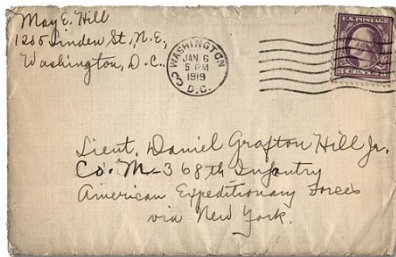 May E. Hill
1205 Linden St., N.E.,
Washington, D.C.,
WASHINGTON
JAN 6
5 PM
1919
D.C.
3
U.S. POSTAGE
Lieut. Daniel Grafton Hill Jr.
Co. M - 368th Infantry
American Expeditionary Forces
via New York.